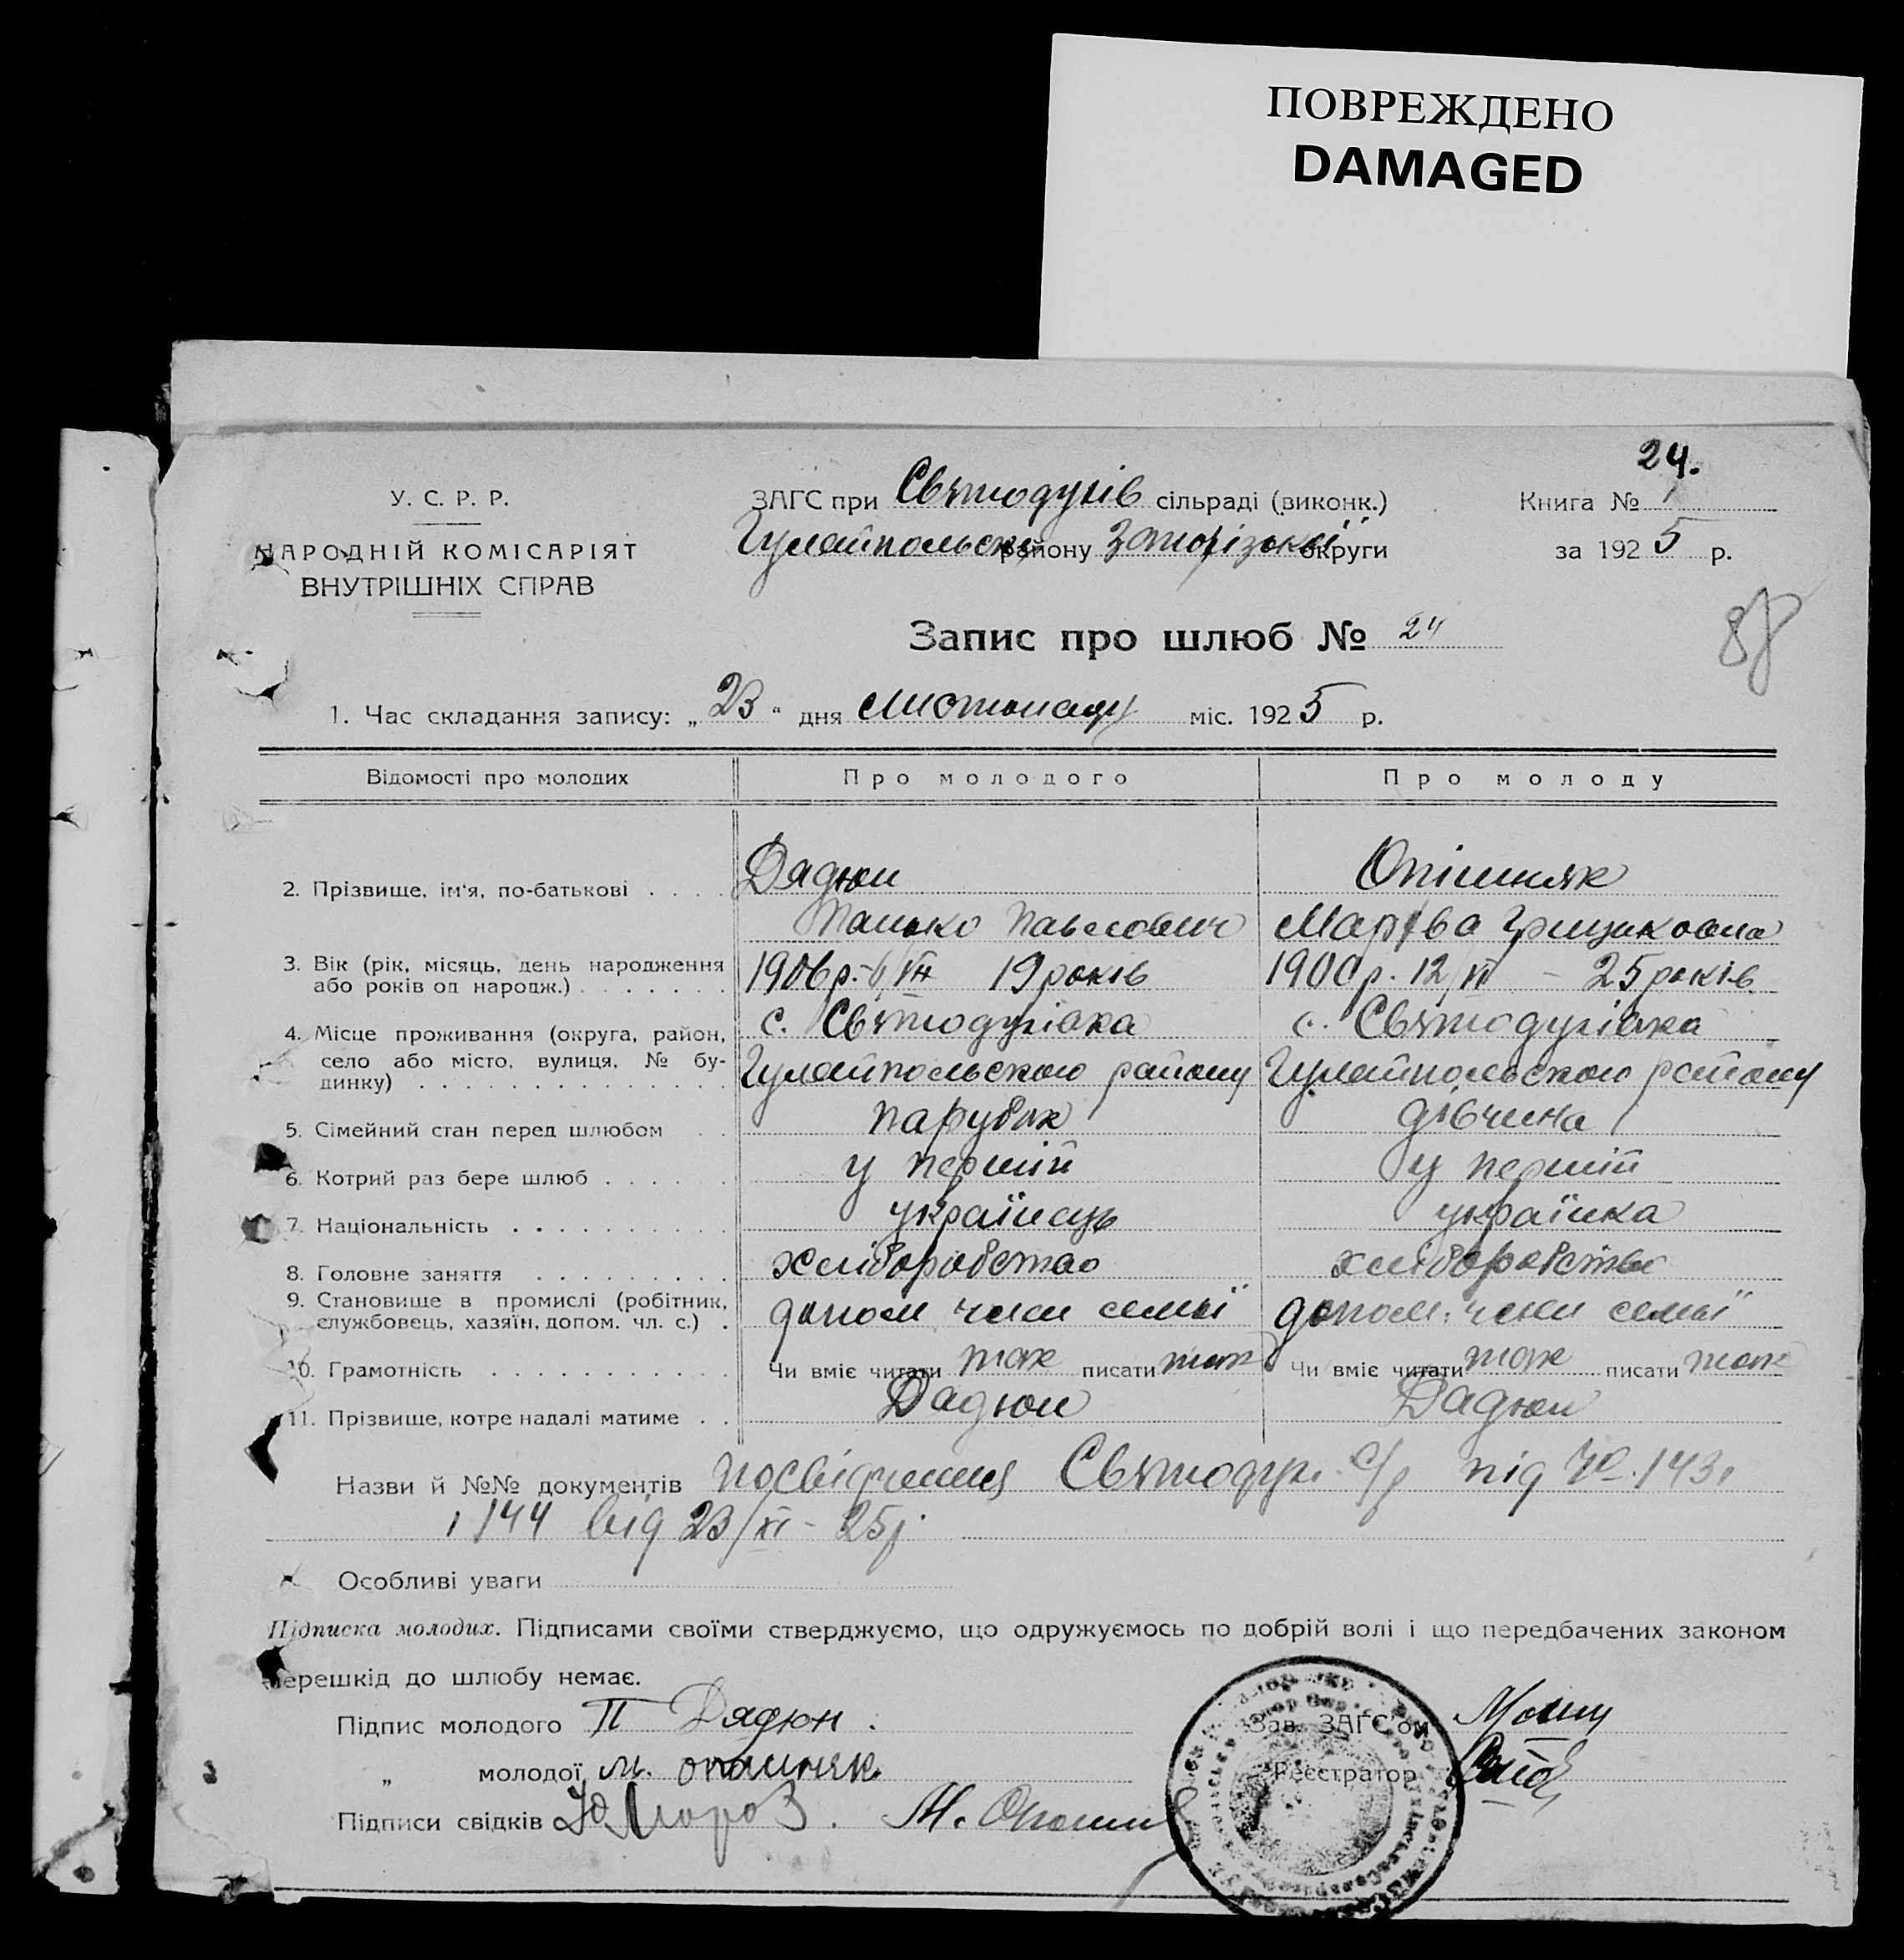 ПОВРЕЖДЕНО
DAMAGED
24.
У. С. Р. Р.
НАРОДНІЙ КОМІСАРІЯТ
ВНУТРІШНІХ СПРАВ
ЗАГС при Святодухів сільраді (виконк.)
Гуляйпольськ району Запорізької округи
Книга № 1
за 1925 р.
Запис про шлюб № 24
1. Час складання запису: „23“ дня листопаду міс. 1925 р.
Відомості про молодих Про молодого Про молоду
2. Прізвище, ім'я, по-батькові . . . . Дядюн Опішняк
Панько Павлович Марфва Грицьковна
3. Вік (рік, місяць, день народження або років од народж.) 1906р. VII 19 років 1900р. 12/VI - 25 років
4. Місце проживання (округа, район, село або місто, вулиця, № будинку) с. Святодухівка с. Святодухівка
Гуляйпольського району Гуляйпольського району
5. Сімейний стан перед шлюбом парубок дівчина
6. Котрий раз бере шлюб у перший у перший
7. Національність українець українка
8. Головне заняття хліборобство хліборобство
9. Становище в промислі (робітник, службовець, хазяїн, допом. чл. с.) допом член семьї допом. член семьї
10. Грамотність Чи вміє читати так писати так Чи вміє читати так писати так
11. Прізвище, котре надалі матиме Дадюн Дадюн
Назви й №№ документів посвідчення Святодух. с/р під № 143,
і 144 від 23/XI - 25р.
Особливі уваги
Підписка молодих. Підписами своїми стверджуємо, що одружуємось по добрій волі і що передбачених законом
перешкід до шлюбу немає.
Підпис молодого П Дядюн. Зав. ЗАГС'ом
„ молодої м. опошняк Реєстратор
Підписи свідків Ю Мороз. М. Опошн